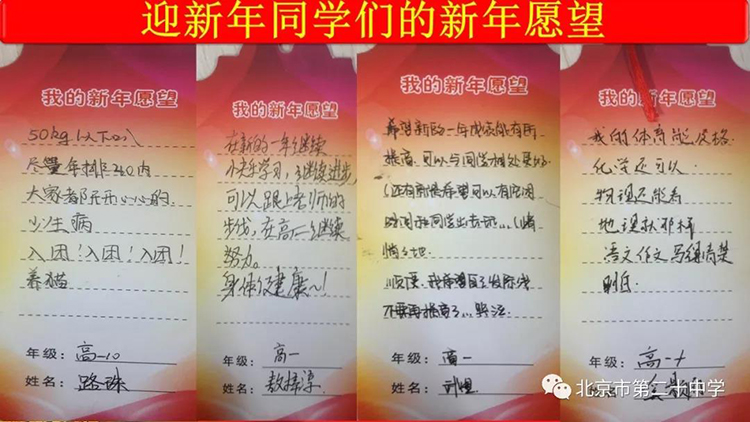 迎新年同学们的新年愿望
我的新年愿望
50kg以下!!!
尽量年排260内
大家都开开心心的
少生病
入团!入团!入团!
养猫
年级:高一10
姓名:路珠
我的新年愿望
在新的一年继续
快乐学习,继续进步,
可以跟上老师的
步伐,在高二继续
努力。
身体健康~!
年级:高一
姓名:
我的新年愿望
希望新的一年成绩能有所
提高,可以与同学相处更好
(还有就是希望可以有空闲
时间和同学出去玩...(悄
悄地
顺便,我希望自己发际线
不要再提高了...
年级:高一
姓名:
我的新年愿望
我的体育能及格
化学还可以
物理还能看
地理就那样
语文作文写清楚
年级:高一十
北京市第二十中学